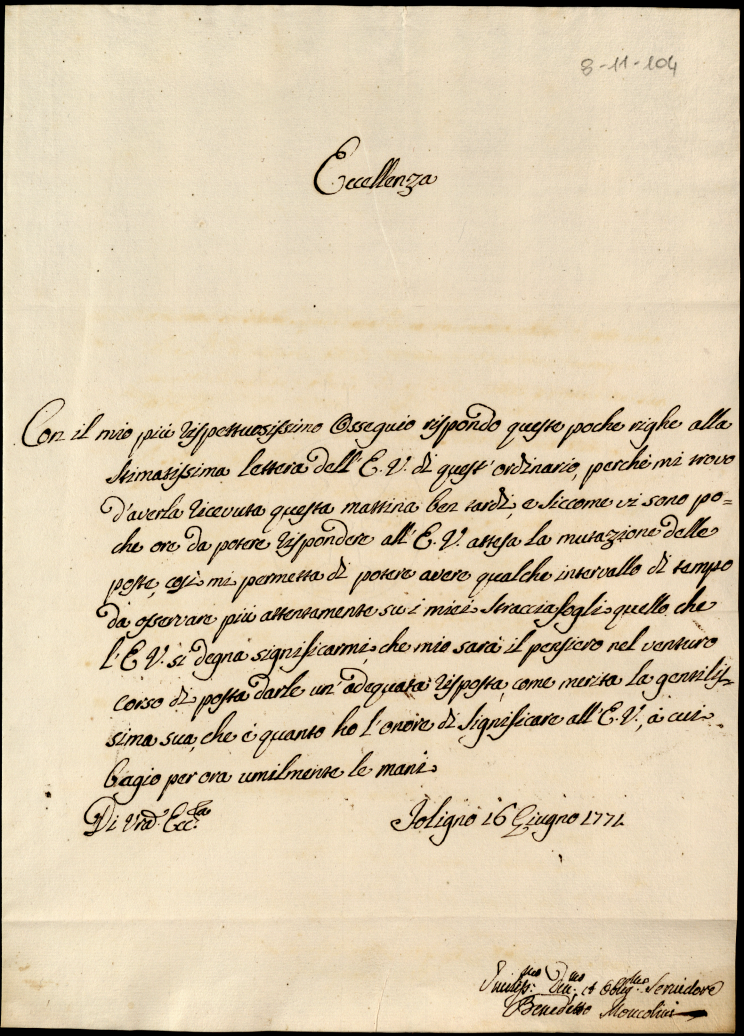 8-11-104
Eccellenza
Con il mio più rispettuosissimo Ossequio rispondo queste poche righe alla
stimatissima lettera dell'E.V. di quest'ordinario, perchè mi trovo
d'averla ricevuta questa mattina ben tardi, e siccome vi sono po=
che ore da potere rispondere all'E.V. attesa la mutazione delle
poste, così mi permetta di potere avere qualche intervallo di tempo
da osservare più attentamente su i miei stracciafogli quello, che
l'E.V. si degna significarmi, che mio sarà il pensiero nel venturo
corso di posta darle un'adequata risposta, come merita la gentilis=
sima sua, che è quanto ho l'onore di significare all'E.V., a cui
bagio per ora umilmente le mani.
Di Vra Ecc.za
Foligno 16 Giugno 1771
Umiliss:mo Dev:mo et Oblig:mo Servidore
Benedetto